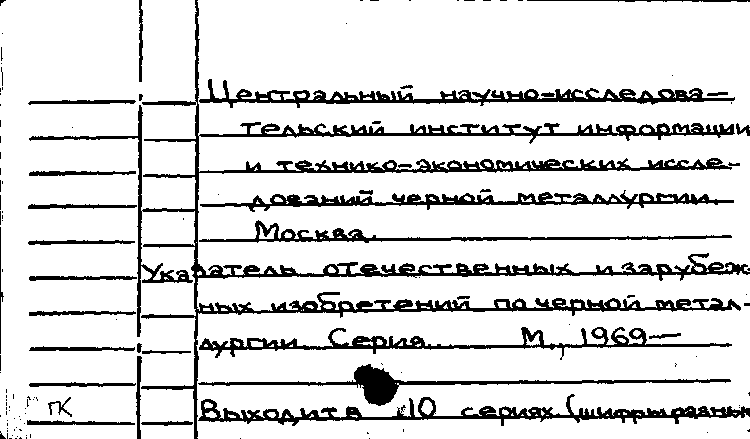 Центральный научно-исследова-
тельский институт информации
и технико-экономических иссле-
дований черной металлургии.
Москва.
Указатель отечественных и зарубеж-
ных изобретений по черной метал-
лургии. Серия. М., 1969—
ПК Выходит в 10 сериях (шифры разны